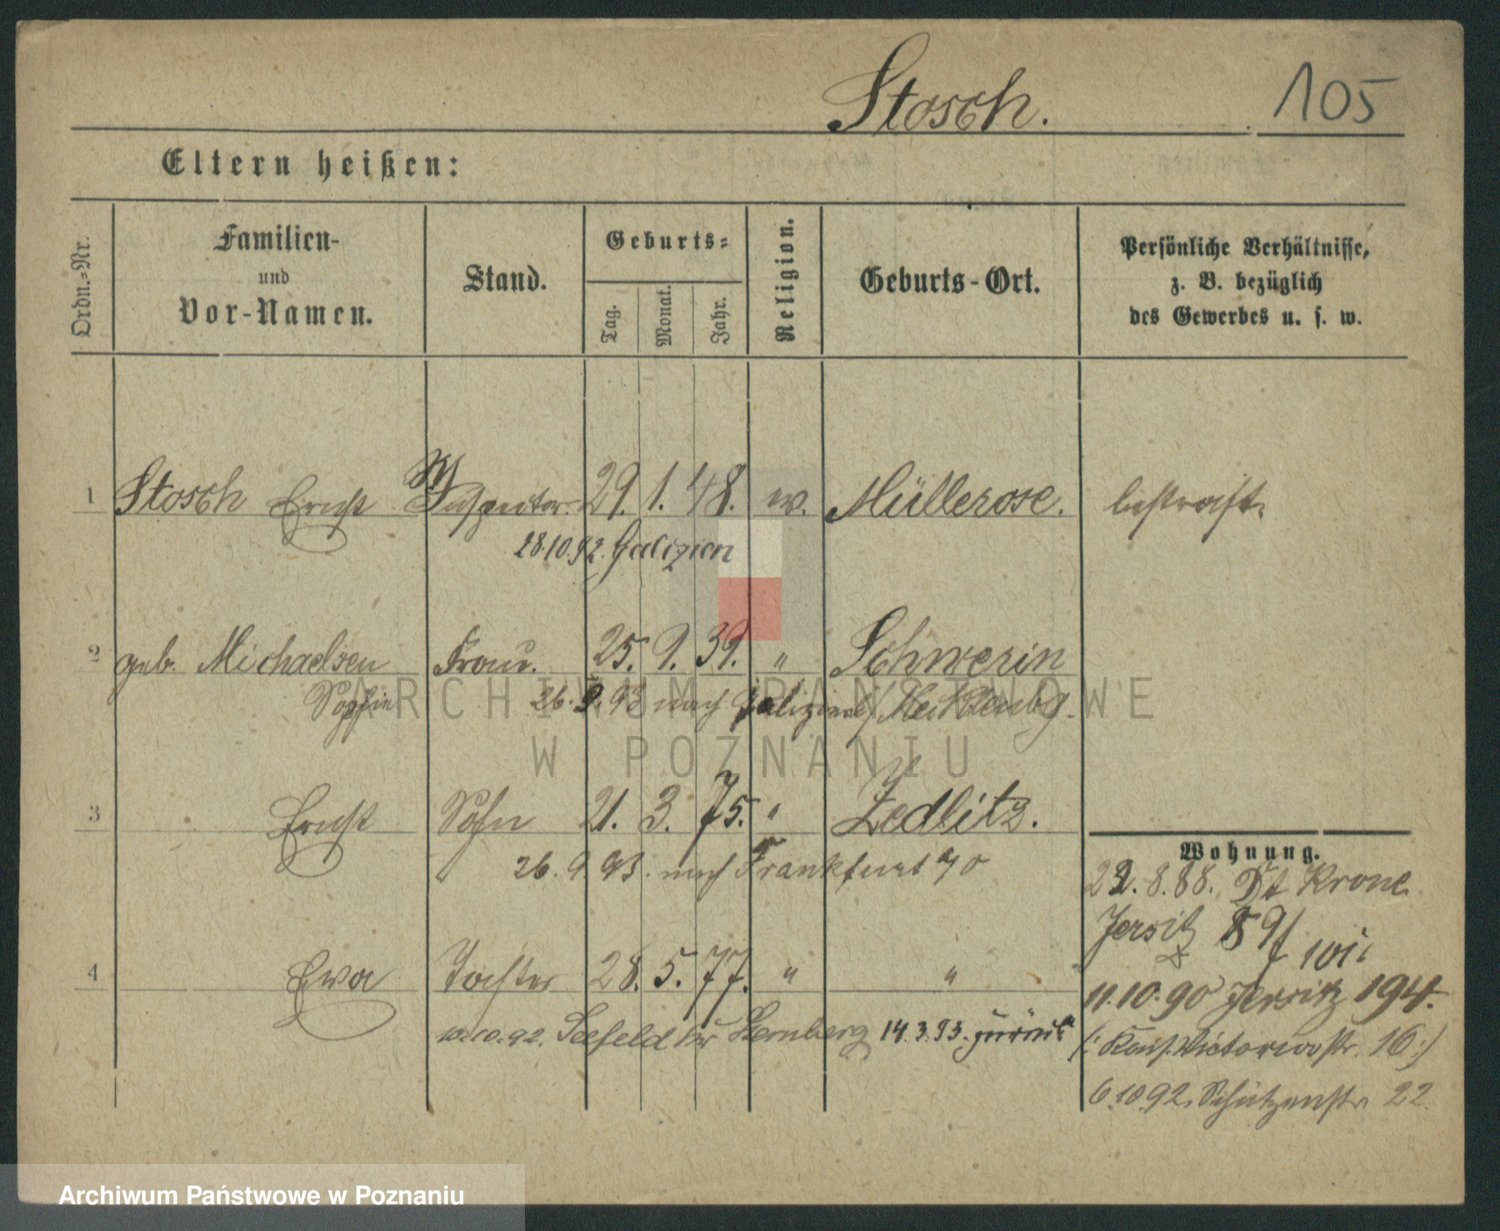 Stosch. 105
Eltern heißen:
Ordn.-Nr. Familien- und Vor-Namen. Stand. Geburts- Tag. Monat. Jahr. Religion. Geburts-Ort. Persönliche Verhältnisse, z. B. bezüglich des Gewerbes u. s. w.
1 Stosch Ernst Inspector. 29. 1. 48. ev. Müllerose. bestraft.
28.10.92. Galizien
2 geb. Michaelsen Frau. 25. 9. 39. " Schwerin
Sophie 26.9.93 nach Galizien / Mecklenbg.
3 Ernst Sohn 21. 3. 75. " Zedlitz.
26.9.93. nach Frankfurt a/O
Wohnung.
22.8.88. Dt Krone
Jersitz 89f
101i
4 Eva Tochter 28. 5. 77. " "
11.10.90 Jersitz 194.
10.10.92. Seefeld Kr Sternberg 14.3.93. zurück
(: Kais. Victoriastr. 16 :)
6.10.92. Schützenstr. 22
ARCHIWUM PAŃSTWOWE
W POZNANIU
Archiwum Państwowe w Poznaniu